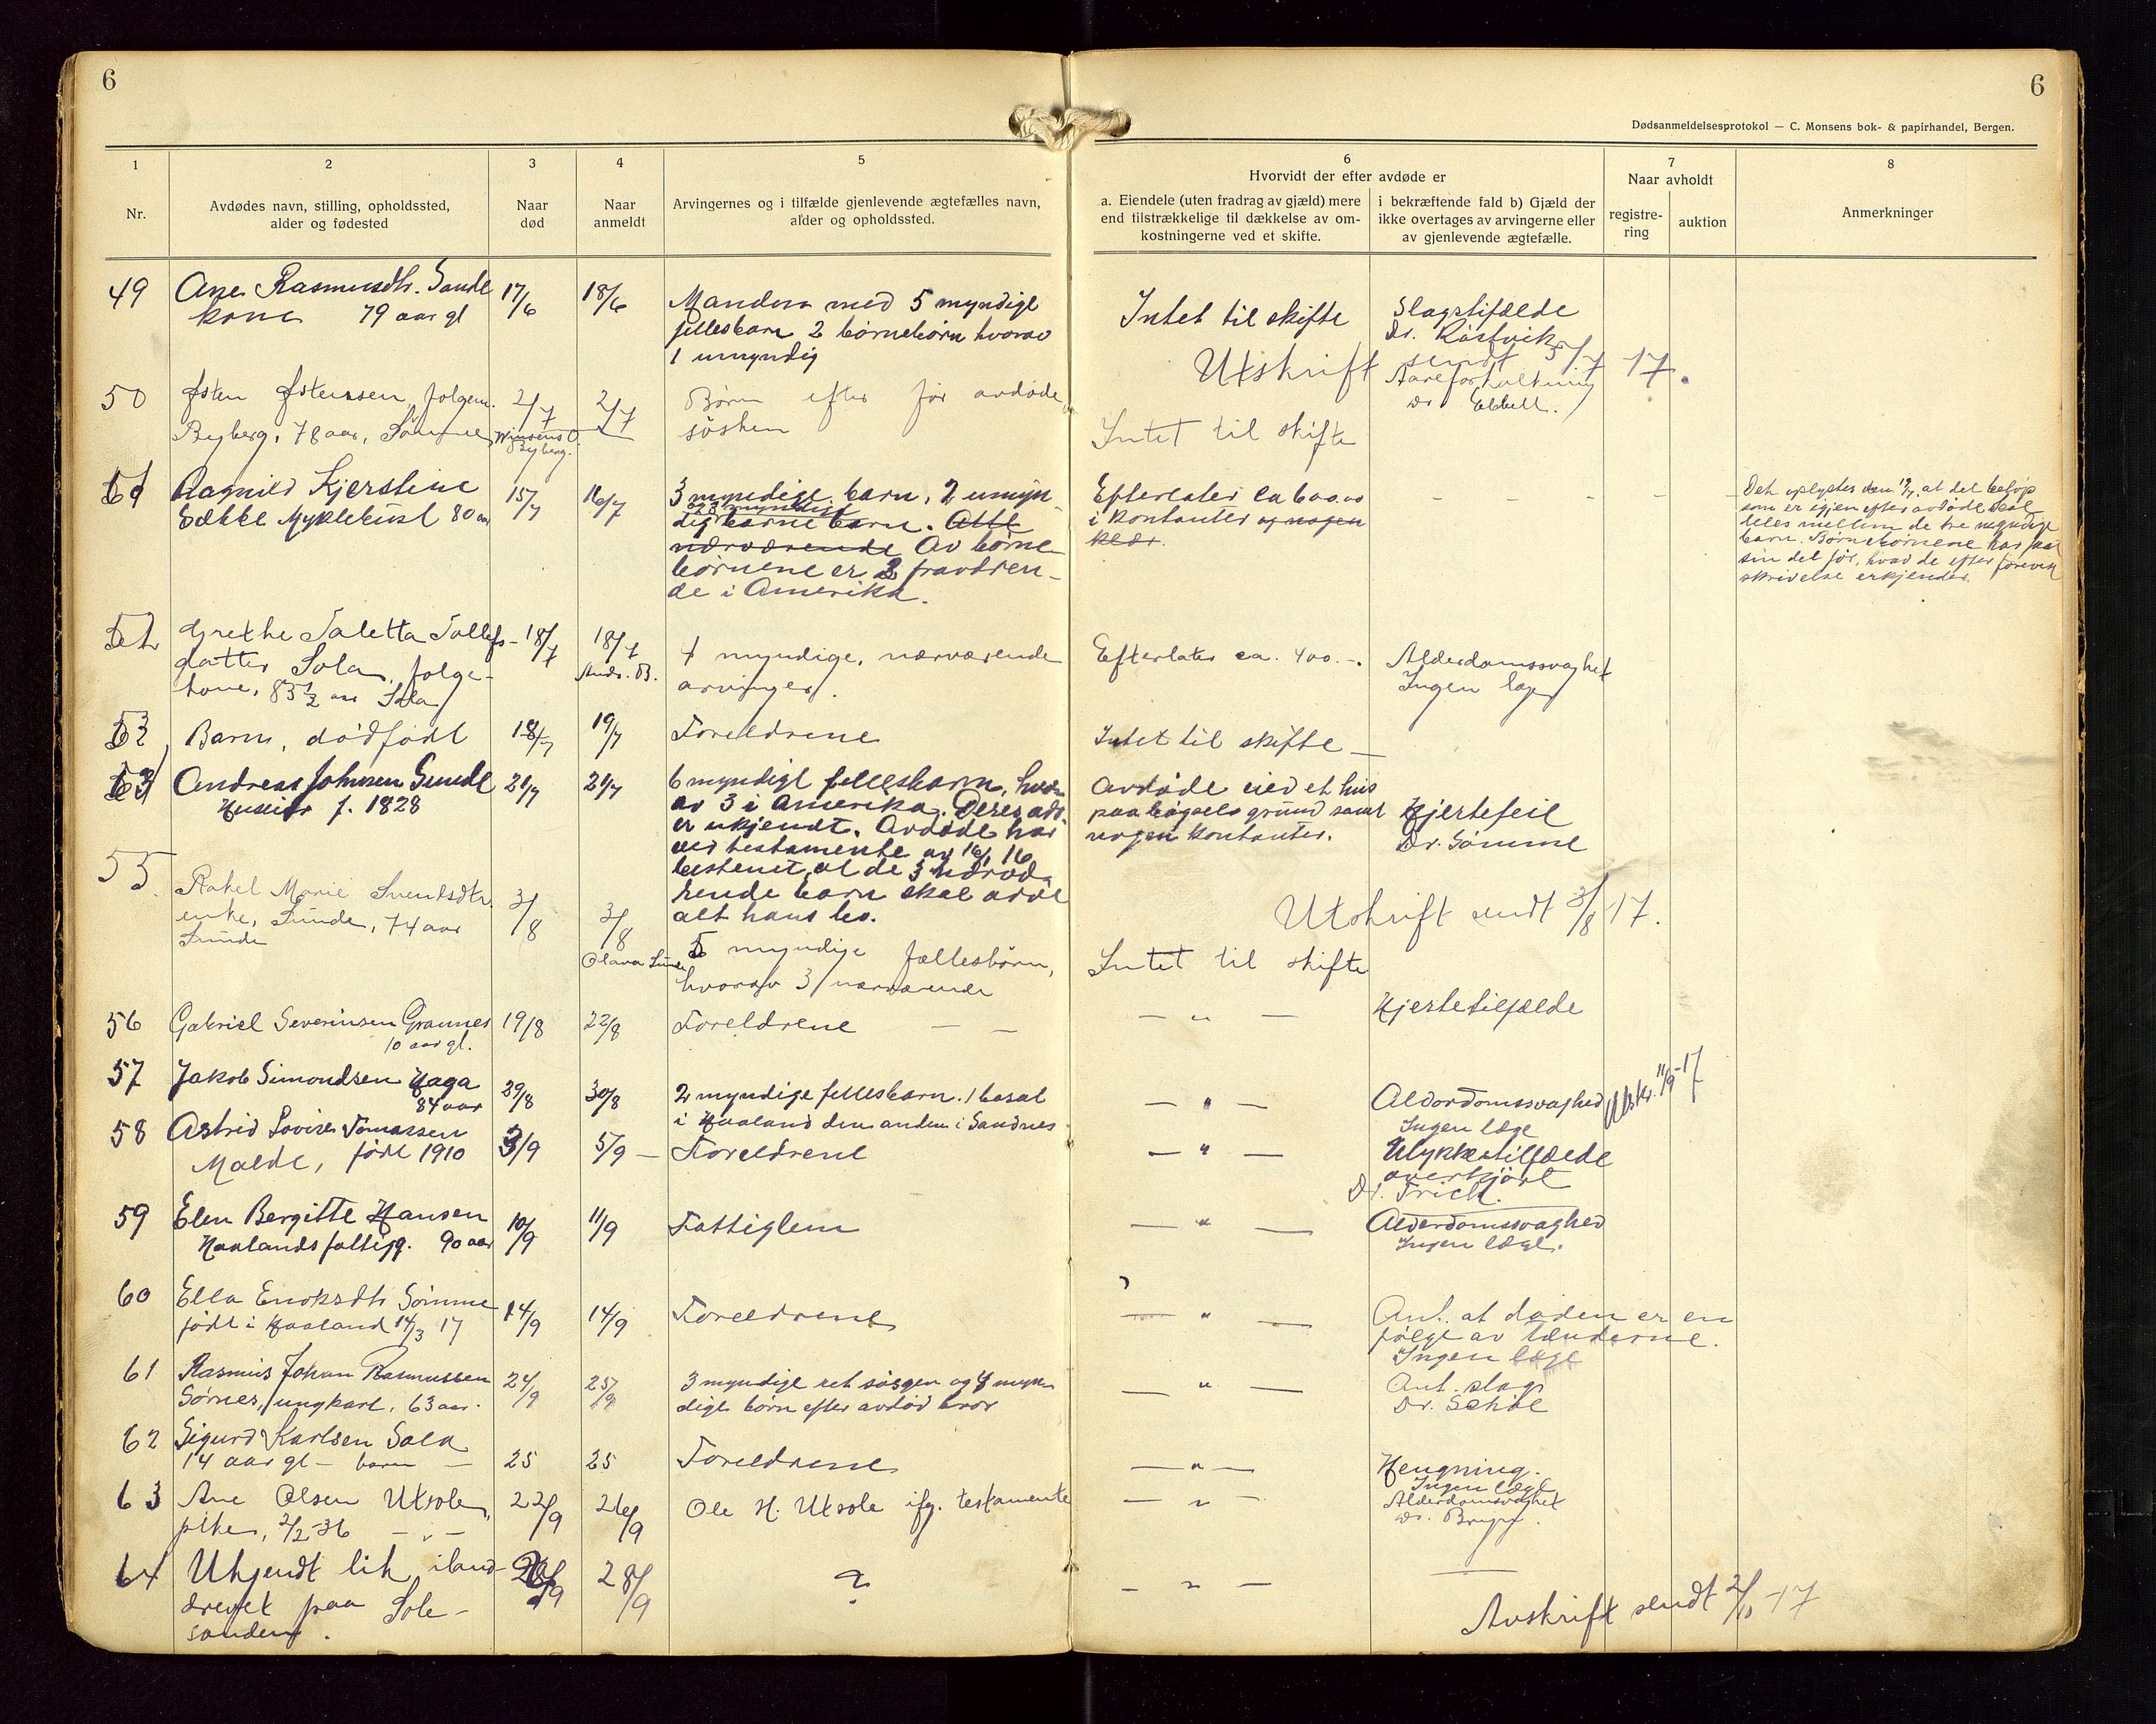 6
6
Dødsanmeldelsesprotokol — C. Monsens bok- & papirhandel, Bergen.
1
2
3
4
5
6
7
8
Nr.
Avdødes navn, stilling, opholdssted,
alder og fødested
Naar
død
Naar
anmeldt
Arvingernes og i tilfælde gjenlevende ægtefælles navn,
alder og opholdssted.
Hvorvidt der efter avdøde er
a. Eiendele (uten fradrag av gjæld) mere
end tilstrækkelige til dækkelse av om-
kostningerne ved et skifte.
i bekræftende fald b) Gjæld der
ikke overtages av arvingerne eller
av gjenlevende ægtefælle.
Naar avholdt
registre-
ring
auktion
Anmerkninger
49 Ane Rasmusdtr. Sande 17/6 18/6
kone 79 aar gl
Manden med 5 myndige
fellesbarn 2 børnebørn hvorav
1 umyndig
Intet til skifte
Slagtilfælde
Dr. Røstvik
Utskrift sendt 5/7 17.
50 Østen Østensen, følgem. 2/7 2/7
Byberg, 78 aar, Sømme
Byberg.
Børn efter før avdøde
søsken
Intet til skifte
Aareforkalkning
Dr. Ebbell.
51 Ragnild Kjerstine 15/7 16/7
Bække Myklebust 80 aar
3 myndige barn, 2 umyn-
og 3 myndige
dige barne barn. Alle
nærværende Av børne-
børnene er 2 fraværen-
de i Amerika.
Efterlater ca 600.00
i kontanter og nogen
klær.
Det oplystes den 19/7 at det beløp
som er igjen efter avdøde skal
deles mellem de tre myndige
barn. Børnebørnene har faat
sin del før, hvad de efter forevist
skrivelse erkjender.
52 Grethe Taletta Tollefs- 18/7 18/7
datter Sola, følge-
kone, 83 1/2 aar Sola
4 myndige, nærværende
arvinger.
Efterlater ca. 400.-.
Alderdomssvaghet
Ingen læge
53 Barn, dødfødt 18/7 19/7 Foreldrene Intet til skifte —
Andreas Johnsen Sunde 21/7 21/7
f. 1828
6 myndige fellesbarn, hvor-
av 3 i Amerika. Deres adr.
er ukjendt. Avdøde har
ved testamente av 16/1 16
bestemt, at de 3 nærvæ-
rende barn skal arve
alt hans bo.
Avdøde eied et hus
paa bøgsels grund samt
nogen kontanter.
Hjertefeil
Dr. Sømme
Utskrift sendt 3/8 17.
55 Rakel Marie Svendsdtr. 3/8 3/8
enke, Sunde, 74 aar
Sunde
Olava Sunde
5 myndige fællesbørn,
hvorav 3 nærværende
Intet til skifte
56 Gabriel Severinsen Grannes 19/8 22/8 Foreldrene — —
10 aar gl.
— " — Hjertetilfælde
57 Jakob Simondsen Haga 29/8 30/8
84 aar
2 myndige fellesbarn. 1 bosat
i Haaland den anden i Sandnes
— " — Alderdomssvaghed
Ingen læge
Utskr. 11/9-17
58 Astrid Lovise Tomassen 3/9 5/9 — Foreldrene
Malde, født 1910
— " — Ulykkestilfælde
overkjørt
Dr. Frich.
59 Elen Bergitte Hansen 10/9 11/9 Fattiglem
Haalands fattigg. 90 aar
— " — Alderdomssvaghed
Ingen læge.
60 Ella Enoksdtr Sømme 14/9 14/9 Foreldrene
født i Haaland 14/3 17
— " — Ant. at døden er en
følge av tænderne.
Ingen læge
61 Rasmus Johan Rasmussen 24/9 25/9
Sørnes, ungkarl, 63 aar.
3 myndige ret søsgen og 4 myn
dige børn efter avdød bror
— " — Ant. slag
Dr. Schiøl
62 Sigurd Karlsen Sola 25 25 Foreldrene
14 aar gl — barn —
— " — Hengning.
Ingen læge
63 Ane Olsen Utsole, 22/9 26/9 Ole H. Utsole ifg. testamente
pike, 2/2-36 — " —
— " — Alderdomsvaghet
64 Ukjendt lik iland- 28/9 ?
drevet paa Sole-
sanden.
— " —
Avskrift sendt 2/10-17